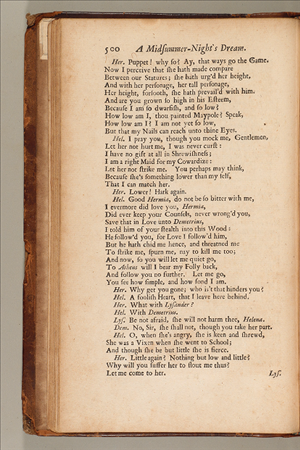 500 A Midsummer-Night's Dream.
Her. Puppet? why so? Ay, that ways go the Game.
Now I perceive that she hath made compare
Between our Statures; she hath urg'd her height,
And with her personage, her tall personage,
Her height, forsooth, she hath prevail'd with him.
And are you grown so high in his Esteem,
Because I am so dwarfish, and so low?
How low am I, thou painted Maypole? Speak,
How low am I? I am not yet so low,
But that my Nails can reach unto thine Eyes.
Hel. I pray you, though you mock me, Gentlemen,
Let her not hurt me, I was never curst:
I have no gift at all in Shrewishness;
I am a right Maid for my Cowardize:
Let her not strike me. You perhaps may think,
Because she's something lower than my self,
That I can match her.
Her. Lower! Hark again.
Hel. Good Hermia, do not be so bitter with me,
I evermore did love you, Hermia,
Did ever keep your Counsels, never wrong'd you,
Save that in Love unto Demetrius,
I told him of your stealth into this Wood:
He follow'd you, for Love I follow'd him,
But he hath chid me hence, and threatned me
To strike me, spurn me, nay to kill me too;
And now, so you will let me quiet go,
To Athens will I bear my Folly back,
And follow you no further. Let me go,
You see how simple, and how fond I am.
Her. Why get you gone; who is't that hinders you?
Hel. A foolish Heart, that I leave here behind.
Her. What with Lysander?
Hel. With Demetrius.
Lys. Be not afraid, she will not harm thee, Helena.
Dem. No, Sir, she shall not, though you take her part.
Hel. O, when she's angry, she is keen and shrewd,
She was a Vixen when she went to School;
And though she be but little she is fierce.
Her. Little again? Nothing but low and little?
Why will you suffer her to flout me thus?
Let me come to her. Lys.